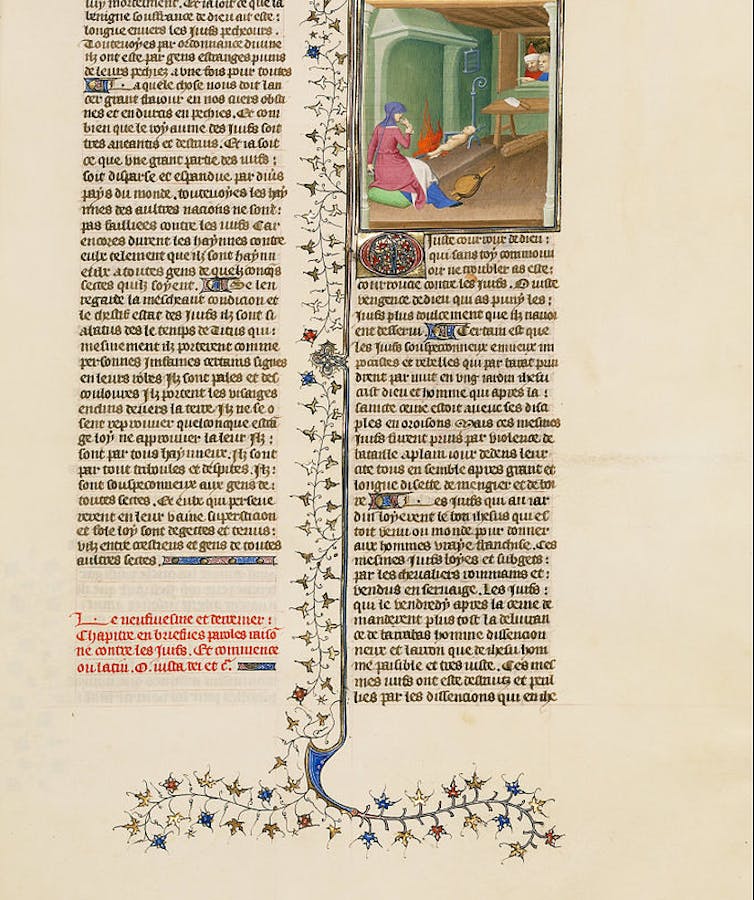 luy mortelment. Et ia soit ce que la
benigne souffrance de dieu ait este:
longue envers les iuifs pecheours.
Toutesvoyes par ordonnance divine
ilz ont este par gens estranges punis
de leurs pechiez a une fois pour toutes
laquele chose nous doit lan
cer grant fraour en nos cuers obsti
nes et endurcis en pechies. Et com
bien que le royaume des iuifs soit
tres aneantis et destruis. Et ia soit
ce que une grant partie des iuifs:
soit disparse et espandue par divers
pays du monde, toutesvoyes les hay
nnes des aultres nacions ne sont:
pas faillies contre les iuifs Car
encores durent les haynnes contre
eulx telement que ilz sont haynn
eux a toutes gens de quelconques
sectes quilz soyent. Se len
regarde la meschant condicion et
le chestif estat des iuifs ilz sont si
alatus des le temps de Titus qui:
mesmement ilz porterent comme
personnes infames certains signes
en leurs robes Ilz sont pales et des
coulourez Ilz portent les visaiges
enclins devers la terre. Ilz ne so
sent reprouver quelconque estran
ge loy ne approuver la leur Ilz:
sont par tous haynneux. Ilz sont
par tout triboules et despites. Ilz:
sont souspeconneux aux gens de:
toutes sectes. Et ceulx qui perseve
rerent en leur vaine supersticion
et fole loy sont degettes et tenus:
vilz entre crestiens et gens de toutes
aultres sectes.
Le neufviesme et derrenier:
Chapitre en briefves paroles raiso
ne contre les iuifs. Et commence
ou latin. O. iusta dei et c̃.
O iuste courroux de dieu:
qui sans toy commouu
oir ne troubler as este:
courroucie contre les iuifs. O iuste
vengence de dieu qui as puny les:
iuifs plus doulcement que ilz navoi
ent desservi. Certain est que
les iuifs souspeconneux envieux im
pocrites et rebelles qui par barat prin
drent par nuit en ung iardin ihesu
crist dieu et homme qui apres la:
saincte cene estoit avecc ses disci
ples en oroisons Mais ces mesmes
iuifs furent prins par violence de
bataille a plain iour dedens leur
cite tous en semble apres grant et
longue disette de mengier et de boi
re Les iuifs qui au iar
din loyerent le bon ihesus qui es
toit venu ou monde pour donner
aux hommes vraye franchise. Ces
mesmes iuifs loyes et subgets:
par les chevaliers rommains et:
vendus en servaige. Les iuifs:
qui le vendredy apres la cene de
manderent plus tost la delivran
ce de barrabas homme dissencion
neux et larron que de ihesu hom
me paisible et tres iuste. Ces mes
mes iuifs ont este destruiz et peril
lies par les dissencions qui en ihe